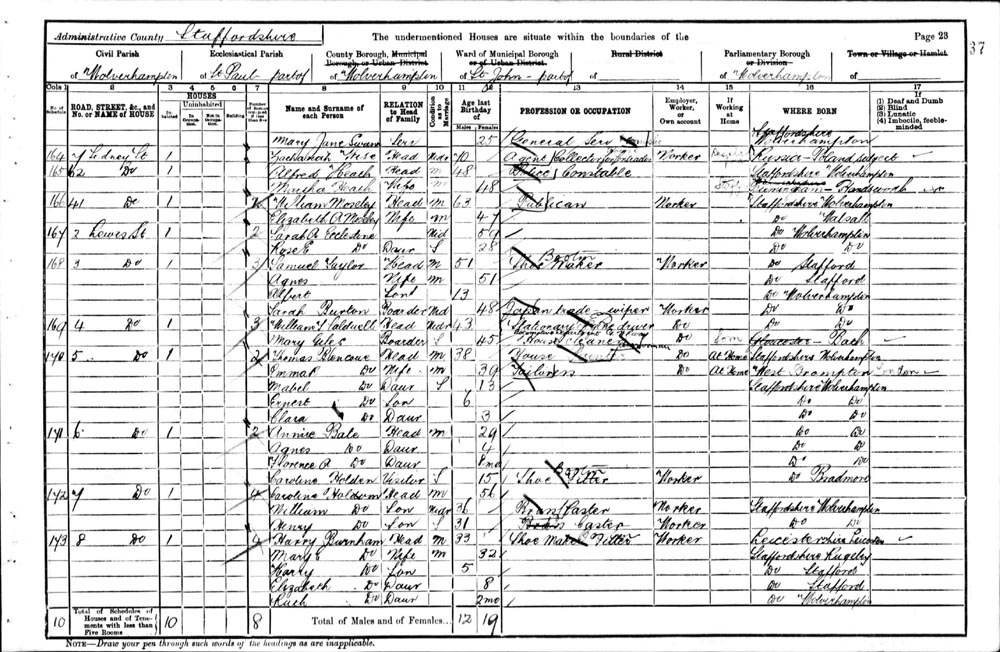 Administrative County Staffordshire The undermentioned Houses are situate within the boundaries of the Page 23
37
Civil Parish Ecclesiastical Parish County Borough, Municipal Borough, or Urban District Ward of Municipal Borough or of Urban District Rural District Parliamentary Borough or Division Town or Village or Hamlet
of Wolverhampton of St Paul part of of Wolverhampton of St John - part of of of Wolverhampton of
Cols 1 2 3 4 5 6 7 8 9 10 11 12 13 14 15 16 17
No. of Schedule ROAD, STREET, &c., and No. or NAME of HOUSE HOUSES Inhabited Uninhabited In Occupation Not in Occupation Building Name and Surname of each Person RELATION to Head of Family Condition as to Marriage Age last Birthday of Males Females PROFESSION OR OCCUPATION Employer, Worker, or Own account If Working at Home WHERE BORN If (1) Deaf and Dumb (2) Blind (3) Lunatic (4) Imbecile, feeble-minded
Mary Jane Swann Serv 25 General Serv Staffordshire Wolverhampton
164 Sidney St 1 Wise Head Widr 70 Agent Collector Worker Russia Poland
165 62 Do 1 Alfred Head M 48 Police Constable Staffordshire Wolverhampton
Wife M 48 Handsworth
166 41 Do 1 William Moseley Head M 63 Publican Worker Staffordshire Wolverhampton
Elizabeth A Moseley Wife M 47 Do Walsall
167 2 Lewes St 1 2 Sarah A Eccleston Wid 59 Do Wolverhampton
Rose E Do Daur S 28 Do Do
168 3 Do 1 3 Samuel Taylor Head M 51 Shoe Maker Worker Do Stafford
Agnes Wife M 51 Do Stafford
Albert Son 13 Do Wolverhampton
Sarah Burton Boarder Wid 48 Japan trade wiper Worker Do Do
169 4 Do 1 3 William Caldwell Head Widr 43 Stationary Engine driver Do Do Do
Mary Giles Boarder S 45 House cleaner Do Bath
170 5 Do 1 2 Thomas Head M 38 House Do At Home Staffordshire Wolverhampton
Emma Do Wife M 39 Tailoress Do At Home West Brompton London
Mabel Do Daur S 13 Staffordshire Wolverhampton
Ernest Do Son 6 Do Do
Clara Do Daur 3 Do Do
171 6 Do 1 2 Annie Bate Head M 29 Do Do
Agnes Do Daur 4 Do Do
Florence A Do Daur 8mo Do Do
Caroline Holden Visitor S 15 Shoe Fitter Worker Do Bradmore
172 7 Do 1 4 Caroline Head M 56
William Do Son Widr 36 Brass Caster Worker Staffordshire Wolverhampton
Henry Do Son S 31 Brass Caster Worker Do Do
173 8 Do 1 4 Harry Burnham Head M 33 Shoe Worker Leicestershire Leicester
Mary Do Wife M 32 Staffordshire Rugeley
Harry Do Son 5 Do Stafford
Elizabeth Do Daur 8 Do Stafford
Ruth Do Daur 2mo Do Wolverhampton
10 Total of Schedules of Houses and of Tenements with less than Five Rooms 10 8 Total of Males and of Females... 12 19
NOTE—Draw your pen through such words of the headings as are inapplicable.